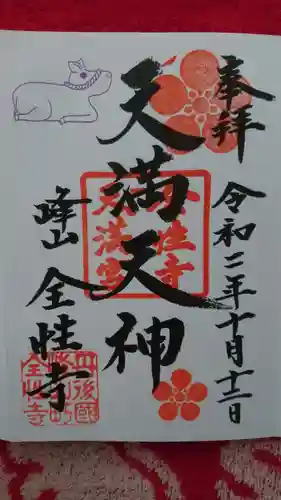 奉拝
令和二年十月十二日
天満天神
峰山
全性寺
全性寺
天満宮
丹後國
峰山町
全性寺